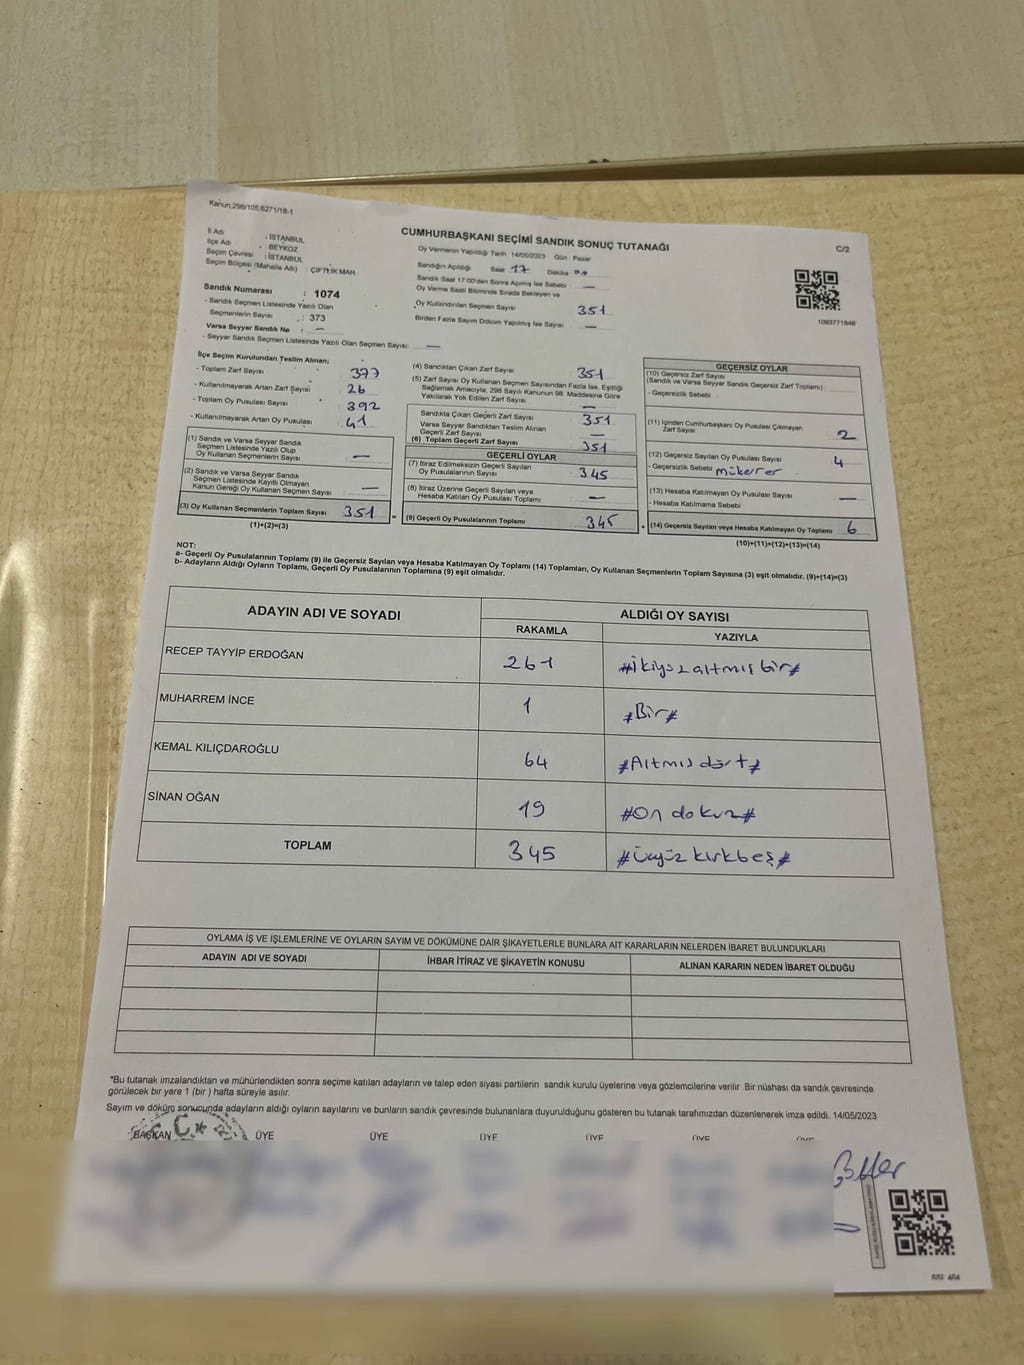 Kanun:298/105,6271/18-1
CUMHURBAŞKANI SEÇİMİ SANDIK SONUÇ TUTANAĞI
C/2
İl Adı : İSTANBUL
İlçe Adı : BEYKOZ
Seçim Çevresi : İSTANBUL
Seçim Bölgesi (Mahalle Adı) : ÇİFTLİK MAH.
Sandık Numarası : 1074
- Sandık Seçmen Listesinde Yazılı Olan
Seçmenlerin Sayısı : 373
Varsa Seyyar Sandık No : —
- Seyyar Sandık Seçmen Listesinde Yazılı Olan Seçmen Sayısı: —
Oy Vermenin Yapıldığı Tarih 14/05/2023 Gün : Pazar
Sandığın Açıldığı Saat 17 Dakika
Sandık Saat 17:00'den Sonra Açılmış İse Sebebi —
Oy Verme Saati Bitiminde Sırada Bekleyen ve
Oy Kullandırılan Seçmen Sayısı 351
Birden Fazla Sayım Döküm Yapılmış İse Sayısı —
1093771848
İlçe Seçim Kurulundan Teslim Alınan;
- Toplam Zarf Sayısı 377
- Kullanılmayarak Artan Zarf Sayısı 26
- Toplam Oy Pusulası Sayısı 392
- Kullanılmayarak Artan Oy Pusulası 41
(1) Sandık ve Varsa Seyyar Sandık
Seçmen Listesinde Yazılı Olup
Oy Kullanan Seçmenlerin Sayısı —
(2) Sandık ve Varsa Seyyar Sandık
Seçmen Listesinde Kayıtlı Olmayan
Kanun Gereği Oy Kullanan Seçmen Sayısı —
(3) Oy Kullanan Seçmenlerin Toplam Sayısı 351
(1)+(2)=(3)
(4) Sandıktan Çıkan Zarf Sayısı 351
(5) Zarf Sayısı Oy Kullanan Seçmen Sayısından Fazla İse, Eşitliği
Sağlamak Amacıyla, 298 Sayılı Kanunun 98. Maddesine Göre
Yakılarak Yok Edilen Zarf Sayısı —
Sandıkta Çıkan Geçerli Zarf Sayısı 351
Varsa Seyyar Sandıktan Teslim Alınan
Geçerli Zarf Sayısı —
(6) Toplam Geçerli Zarf Sayısı 351
GEÇERLİ OYLAR
(7) İtiraz Edilmeksizin Geçerli Sayılan
Oy Pusulalarının Sayısı 345
(8) İtiraz Üzerine Geçerli Sayılan veya
Hesaba Katılan Oy Pusulası Toplamı —
(9) Geçerli Oy Pusulalarının Toplamı 345
GEÇERSİZ OYLAR
(10) Geçersiz Zarf Sayısı
(Sandık ve Varsa Seyyar Sandık Geçersiz Zarf Toplamı)
- Geçersizlik Sebebi
(11) İçinden Cumhurbaşkanı Oy Pusulası Çıkmayan
Zarf Sayısı 2
(12) Geçersiz Sayılan Oy Pusulası Sayısı 4
- Geçersizlik Sebebi mükerrer
(13) Hesaba Katılmayan Oy Pusulası Sayısı —
- Hesaba Katılmama Sebebi
(14) Geçersiz Sayılan veya Hesaba Katılmayan Oy Toplamı 6
(10)+(11)+(12)+(13)=(14)
NOT:
a- Geçerli Oy Pusulalarının Toplamı (9) ile Geçersiz Sayılan veya Hesaba Katılmayan Oy Toplamı (14) Toplamları, Oy Kullanan Seçmenlerin Toplam Sayısına (3) eşit olmalıdır. (9)+(14)=(3)
b- Adayların Aldığı Oyların Toplamı, Geçerli Oy Pusulalarının Toplamına (9) eşit olmalıdır.
ADAYIN ADI VE SOYADI ALDIĞI OY SAYISI
RAKAMLA YAZIYLA
RECEP TAYYİP ERDOĞAN 261 #İkiyüzaltmışbir#
MUHARREM İNCE 1 #Bir#
KEMAL KILIÇDAROĞLU 64 #Altmış dört#
SİNAN OĞAN 19 #On dokuz#
TOPLAM 345 #Üçyüz kırkbeş#
OYLAMA İŞ VE İŞLEMLERİNE VE OYLARIN SAYIM VE DÖKÜMÜNE DAİR ŞİKAYETLERLE BUNLARA AİT KARARLARIN NELERDEN İBARET BULUNDUKLARI
ADAYIN ADI VE SOYADI İHBAR İTİRAZ VE ŞİKAYETİN KONUSU ALINAN KARARIN NEDEN İBARET OLDUĞU
*Bu tutanak imzalandıktan ve mühürlendikten sonra seçime katılan adayların ve talep eden siyasi partilerin sandık kurulu üyelerine veya gözlemcilerine verilir .Bir nüshası da sandık çevresinde
görülecek bir yere 1 (bir ) hafta süreyle asılır.
Sayım ve döküm sonucunda adayların aldığı oyların sayılarını ve bunların sandık çevresinde bulunanlara duyurulduğunu gösteren bu tutanak tarafımızdan düzenlenerek imza edildi. 14/05/2023
BAŞKAN ÜYE ÜYE ÜYE ÜYE ÜYE ÜYE